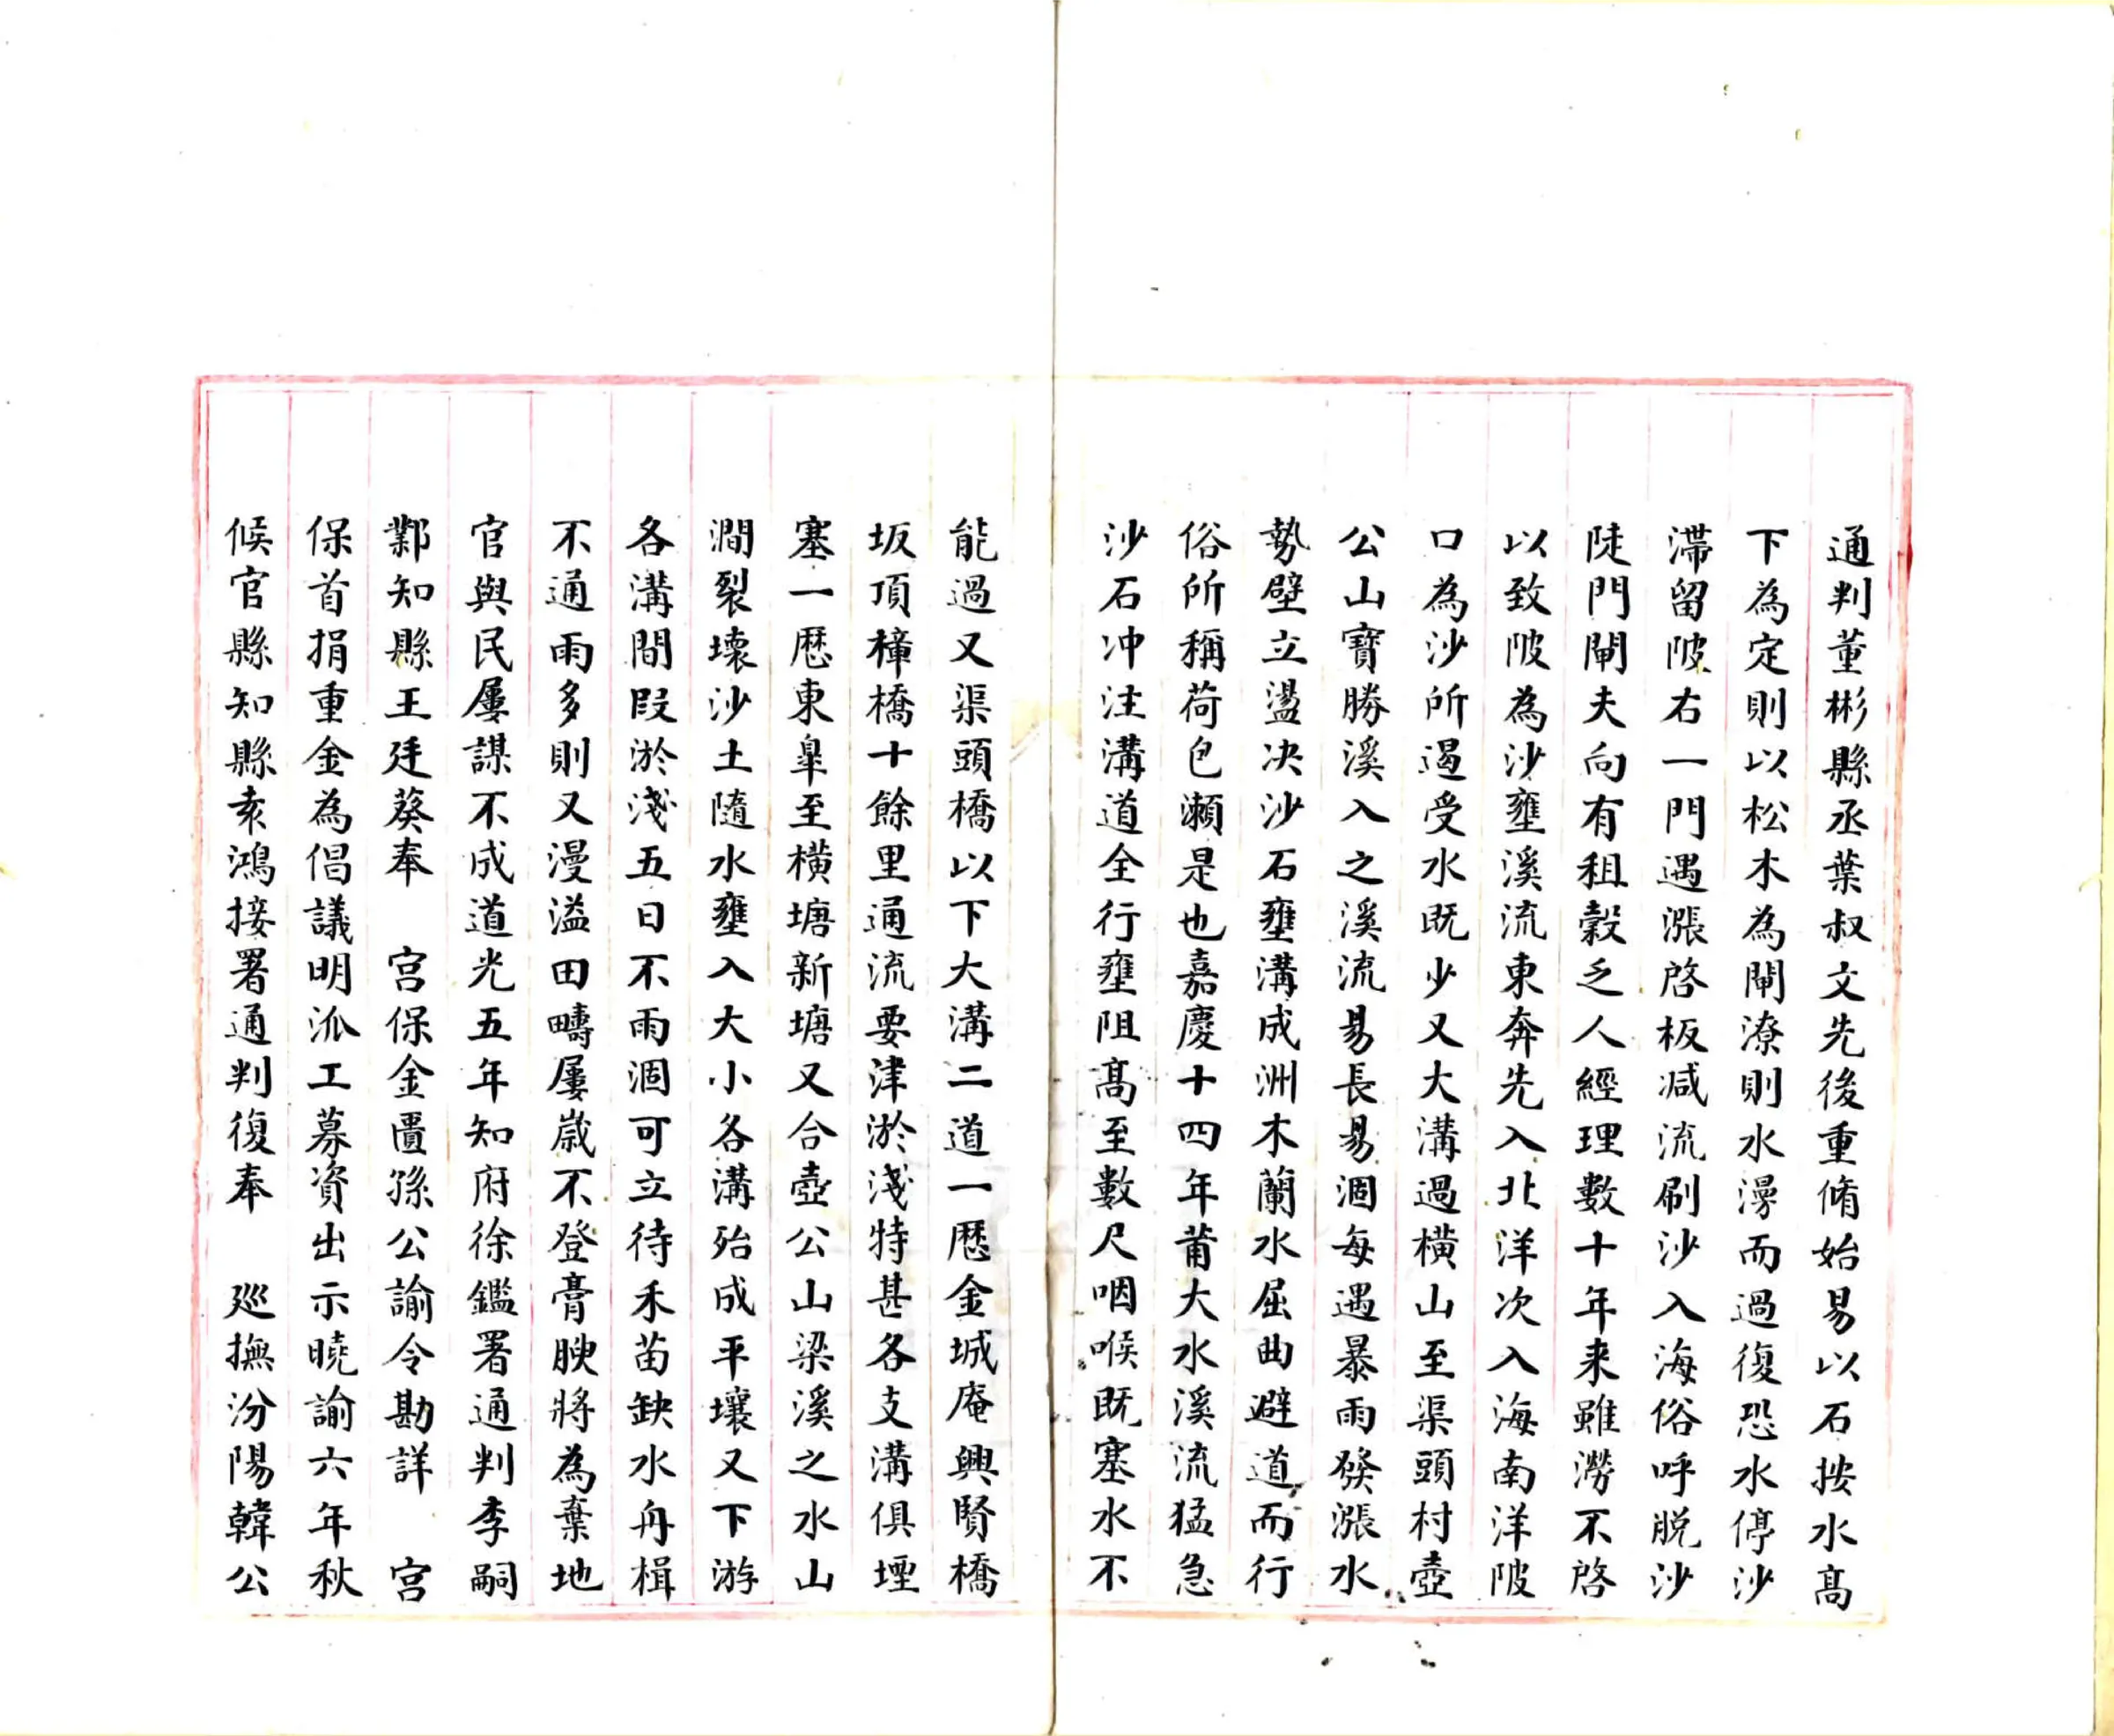 通判董彬縣丞葉叔文先後重脩始易以石按水高
下為定則以松木為閘潦則水漫而過復恐水停沙
滯留陂右一門遇漲啓板减流刷沙入海俗呼脱沙
陡門閘夫向有租穀乏人經理數十年来雖澇不啓
以致陂為沙壅溪流東奔先入北洋次入海南洋陂
口為沙所遏受水既少又大溝過横山至渠頭村壺
公山寶勝溪入之溪流易長易涸每遇暴雨發漲水
勢壁立盪决沙石壅溝成洲木蘭水屈曲避道而行
俗所稱荷包瀨是也嘉慶十四年莆大水溪流猛急
沙石冲注溝道全行壅阻髙至數尺咽喉既塞水不
能過又渠頭橋以下大溝二道一歴金城庵興賢橋
坂頂樟橋十餘里通流要津淤淺特甚各支溝俱堙
塞一歴東臯至横塘新塘又合壺公山梁溪之水山
澗裂壊沙土隨水壅入大小各溝殆成平壤又下游
各溝間段淤淺五日不雨涸可立待禾苗缺水舟楫
不通雨多則又漫溢田疇屢嵗不登膏腴將為棄地
官與民屢謀不成道光五年知府徐鑑署通判李嗣
鄴知縣王廷葵奉　宫保金匱孫公諭令勘詳　宫
保首捐重金為倡議明派工募資出示曉諭六年秋
候官縣知縣袁鴻接署通判復奉　廵撫汾陽韓公